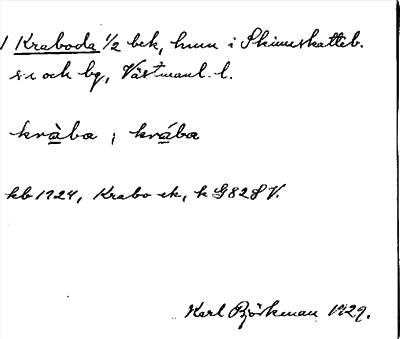 1 Kraboda 1/2 bek, hmn i Skinnskatteb.
sn och bg, Västmanl. l.
kràba ; krába
kb 1924, Krabo ek, k G828 V.
Karl Björkman 1929.